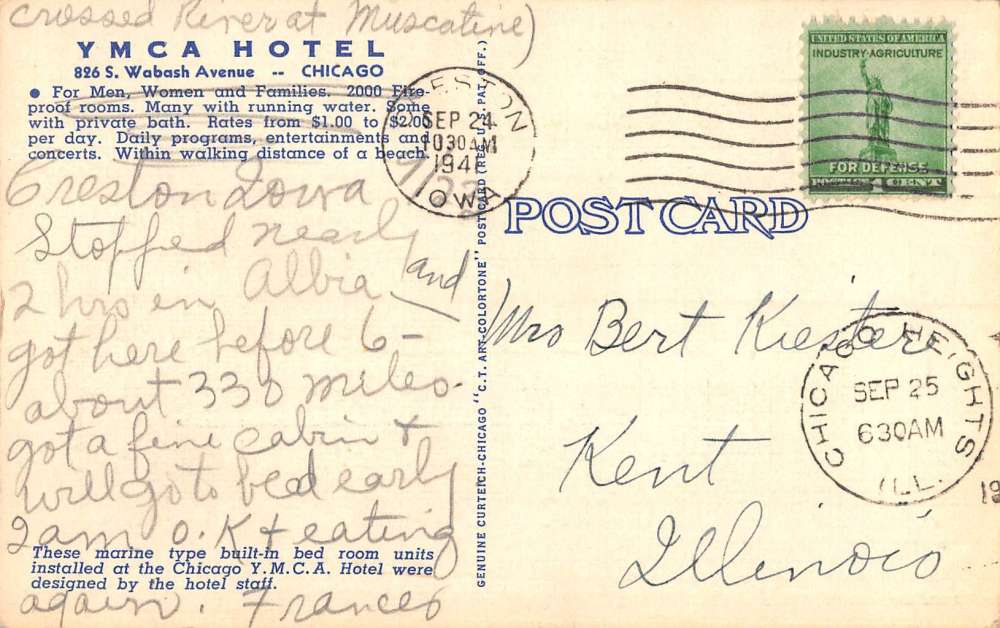 crossed River at Muscatine)
YMCA HOTEL
826 S. Wabash Avenue -- CHICAGO
● For Men, Women and Families. 2000 Fire-
proof rooms. Many with running water. Some
with private bath. Rates from $1.00 to $2.00
per day. Daily programs, entertainments and
concerts. Within walking distance of a beach.
Creston Iowa
Stopped nearly
2 hrs in Albia and
got here before 6-
about 330 miles.
got a fine cabin &
will go to bed early
I am O.K & eating
These marine type built-in bed room units
installed at the Chicago Y.M.C.A. Hotel were
designed by the hotel staff.
again. Frances
CRESTON
SEP 24
1030AM
1941
IOWA
9/23
GENUINE CURTEICH-CHICAGO "C.T. ART-COLORTONE" POST CARD (REG. U.S. PAT. OFF.)
UNITED STATES OF AMERICA
INDUSTRY-AGRICULTURE
FOR DEFENSE
1 CENT
POST CARD
Mrs Bert Kiester
Kent
Illinois
CHICAGO HEIGHTS
SEP 25
630AM
ILL.
19